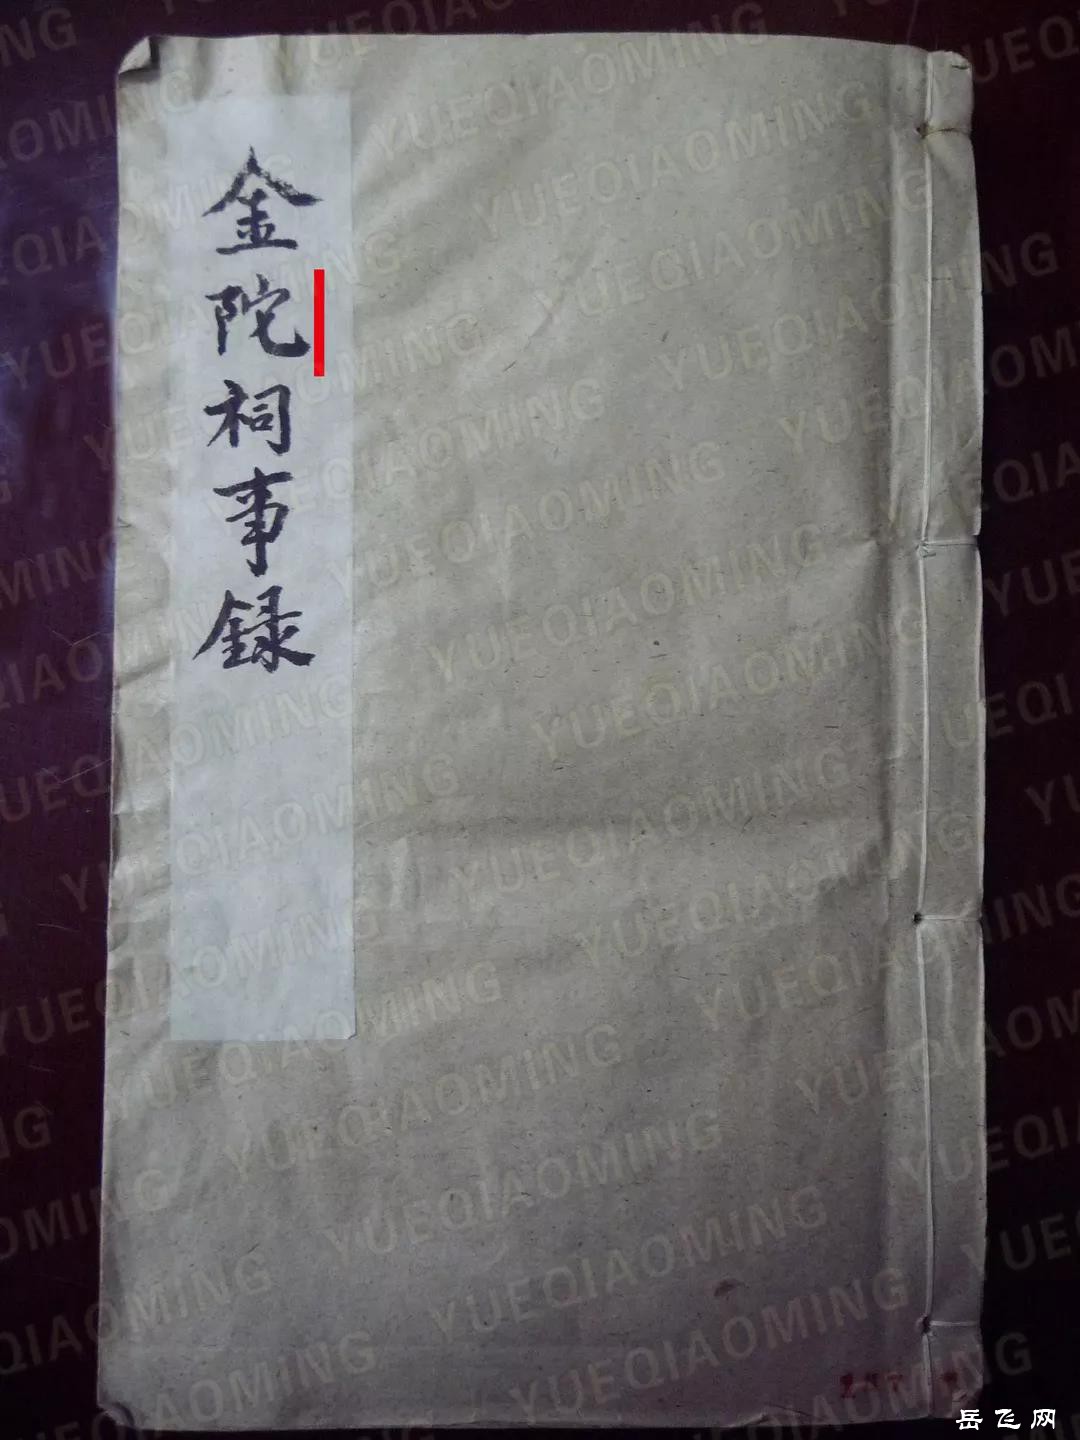 金陀祠事録
岳飞网
YUEQIAOMING